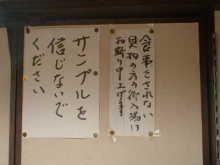 食事をされない
見物の方の御入場は
お断り申し上げます
サンプルを
信じないで
ください